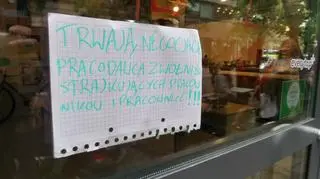 TRWAJĄ NEGOCJACJE
PRACODAWCA ZWOLNIŁ
STRAJKUJĄCYCH PRACOW
NIKÓW I PRACOWNICE!!!